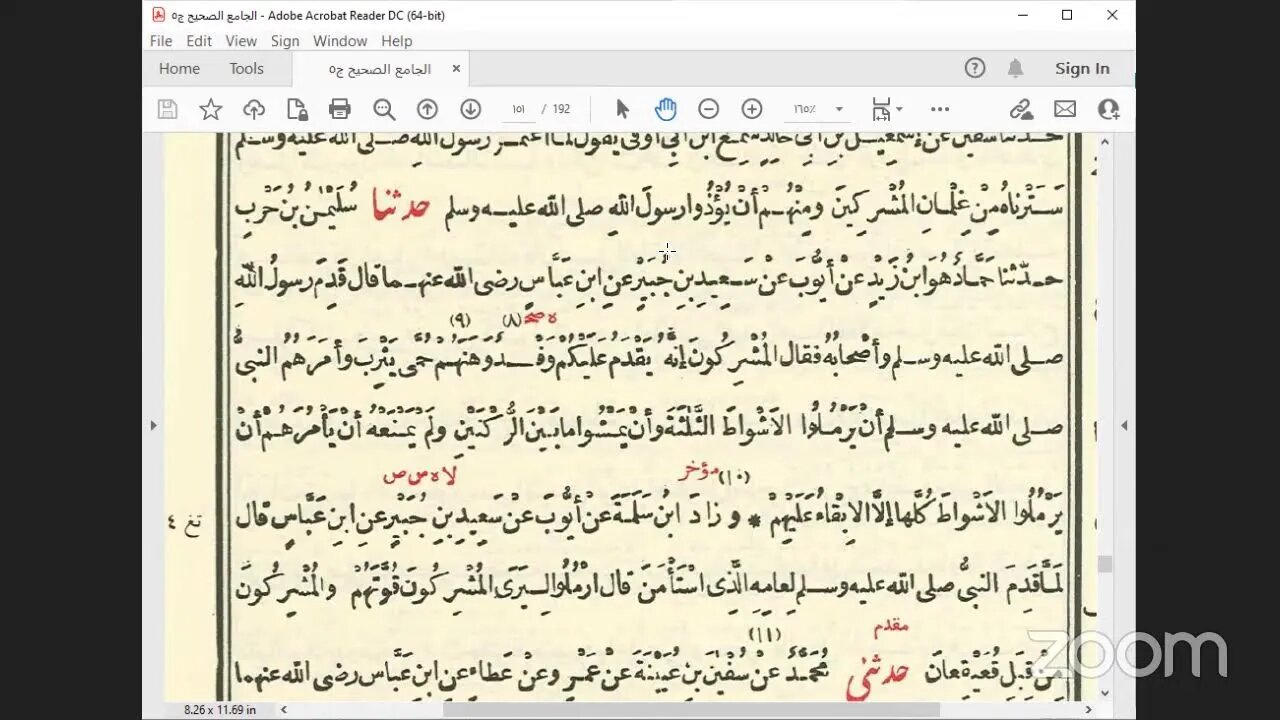 الجامع الصحيح ج٥ - Adobe Acrobat Reader DC (64-bit)
File Edit View Sign Window Help
Home Tools الجامع الصحيح ج٥ Sign In
١٥١ / 192 ١٦٥٪
حدثنا سفين عن إسمعيل بن أبى خالد سمع ابن أبى أوفى يقول لما اعتمر رسول الله صلى الله عليه وسلم
سَتَرْنَاهُ مِنْ غِلْمَانِ الْمُشْرِكِينَ وَمِنْهُمْ أَنْ يُؤْذُوا رسولَ اللهِ صلى الله عليه وسلم حدثنا سُلَيْمٰنُ بْنُ حَرْبٍ
حدّثنا حَمَّادٌ هُوَ ابْنُ زَيْدٍ عَنْ أَيُّوبَ عَنْ سَعِيدِ بنِ جُبَيْرٍ عنِ ابنِ عَبَّاسٍ رضى الله عنهما قال قَدِمَ رسولُ اللهِ
ه صح (٨) (٩)
صلى الله عليه وسلم وأَصْحَابُهُ فقال الْمُشْرِكُونَ إنَّهُ يَقْدَمُ عَلَيْكُمْ وَفْدٌ وَهَنَهُمْ حُمَّى يَثْرِبَ وأَمَرَهُمُ النبىُّ
صلى الله عليه وسلم أَنْ يَرْمُلُوا الأَشْوَاطَ الثَّلٰثَةَ وأَنْ يَمْشُوا ما بَيْنَ الرُّكْنَيْنِ ولَمْ يَمْنَعْهُ أَنْ يَأْمُرَهُمْ أَنْ
(١٠) مؤخر لا ه س ص
يَرْمُلُوا الأَشْوَاطَ كُلَّهَا إلَّا الإِبْقَاءُ عَلَيْهِمْ * وزادَ ابنُ سَلَمَةَ عنْ أَيُّوبَ عَنْ سَعِيدِ بنِ جُبَيْرٍ عنِ ابنِ عَبَّاسٍ قال
تغ ٤
لَمَّا قَدِمَ النبىُّ صلى الله عليه وسلم لِعامِهِ الَّذِى اسْتَأْمَنَ قال ارْمُلُوا لِيَرَى الْمُشْرِكُونَ قُوَّتَهُمْ والْمُشْرِكُونَ
(١١) مقدم
مِنْ قِبَلِ قُعَيْقِعَانَ حدثنى مُحَمَّدٌ عَنْ سُفْيٰنَ بنِ عُيَيْنَةَ عَنْ عَمْرٍو عَنْ عَطَاءٍ عنِ ابنِ عَبَّاسٍ رضى الله عنهما
8.26 x 11.69 in
zoom